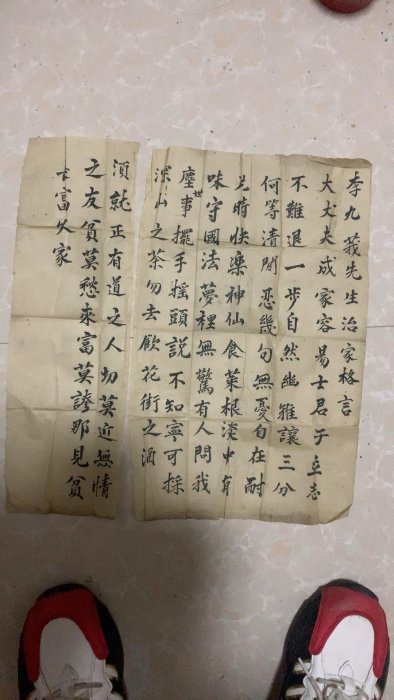 李九莪先生治家格言
大丈夫成家容易士君子立志
不難退一步自然幽雅讓三分
何等清閒忍幾句無憂自在耐
時快樂神仙食菜根淡中有
味守國法夢裡無驚有人問我
塵世事擺手搖頭説不知寧可採
深山之茶勿去飲花街之酒
須就正有道之人切莫近無情
之友貧莫愁來富莫誇那見貧
富久家